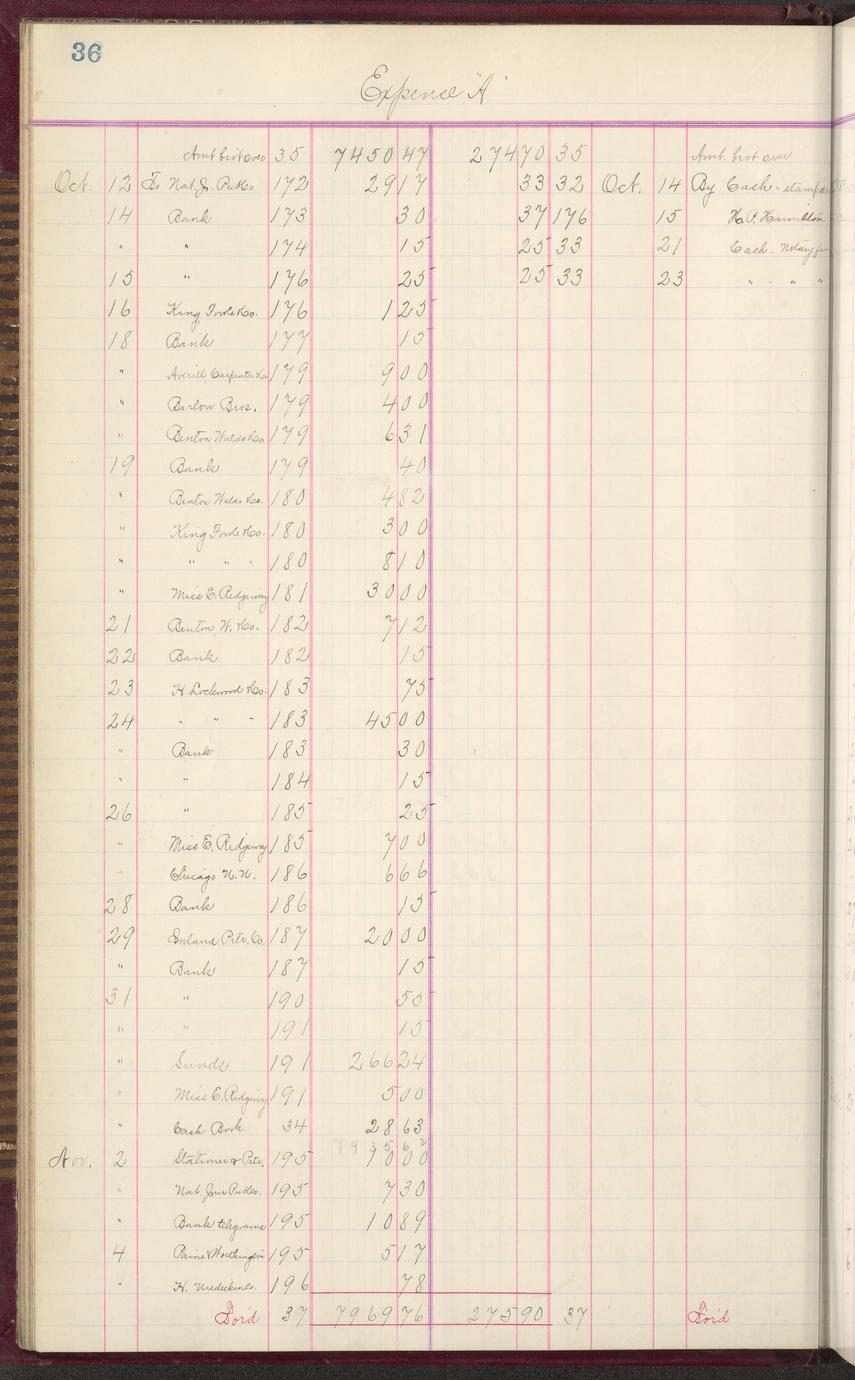 36
Expense "A"
Amt brot over 35 7450 47 27470 35 Amt. brot over
Oct. 12 To Nat. Jr. Pub Co 172 29 17 33 32 Oct. 14 By Cash - stamps
14 Bank 173 30 37 176 15 H. P. Hamilton
" " 174 15 25 33 21 Cash - Notary
15 " 176 25 25 33 23 " - " "
16 King, Fowle & Co. 176 1 25
18 Bank 177 15
" Averill Carpenter 179 9 00
" Barlow Bros. 179 4 00
" Benton Waldo & Co 179 6 31
19 Bank 179 40
" Benton Waldo & Co. 180 4 82
" King Fowle & Co. 180 3 00
" " " " 180 8 10
" Miss E. Ridgeway 181 30 00
21 Benton W. & Co. 182 7 12
22 Bank 182 15
23 H. Lockwood & Co. 183 75
24 " " " 183 45 00
" Bank 183 30
" " 184 15
26 " 185 25
" Miss E. Ridgeway 185 7 00
" Chicago N. W. 186 6 66
28 Bank 186 15
29 Inland Prtr. Co. 187 20 00
" Bank 187 15
31 " 190 50
" " 191 15
" Sunds 191 266 24
" Miss E. Ridgeway 191 5 00
" Cash Book 34 28 63
7935 62
Nov. 2 Stationer & Prtr. 195 10 00
" Nat. Jour Pub Co. 195 7 30
" Bank telegrams 195 10 89
4 Paine & Worthington 195 5 17
" H. 196 78
For'd 37 7969 76 27590 37 For'd